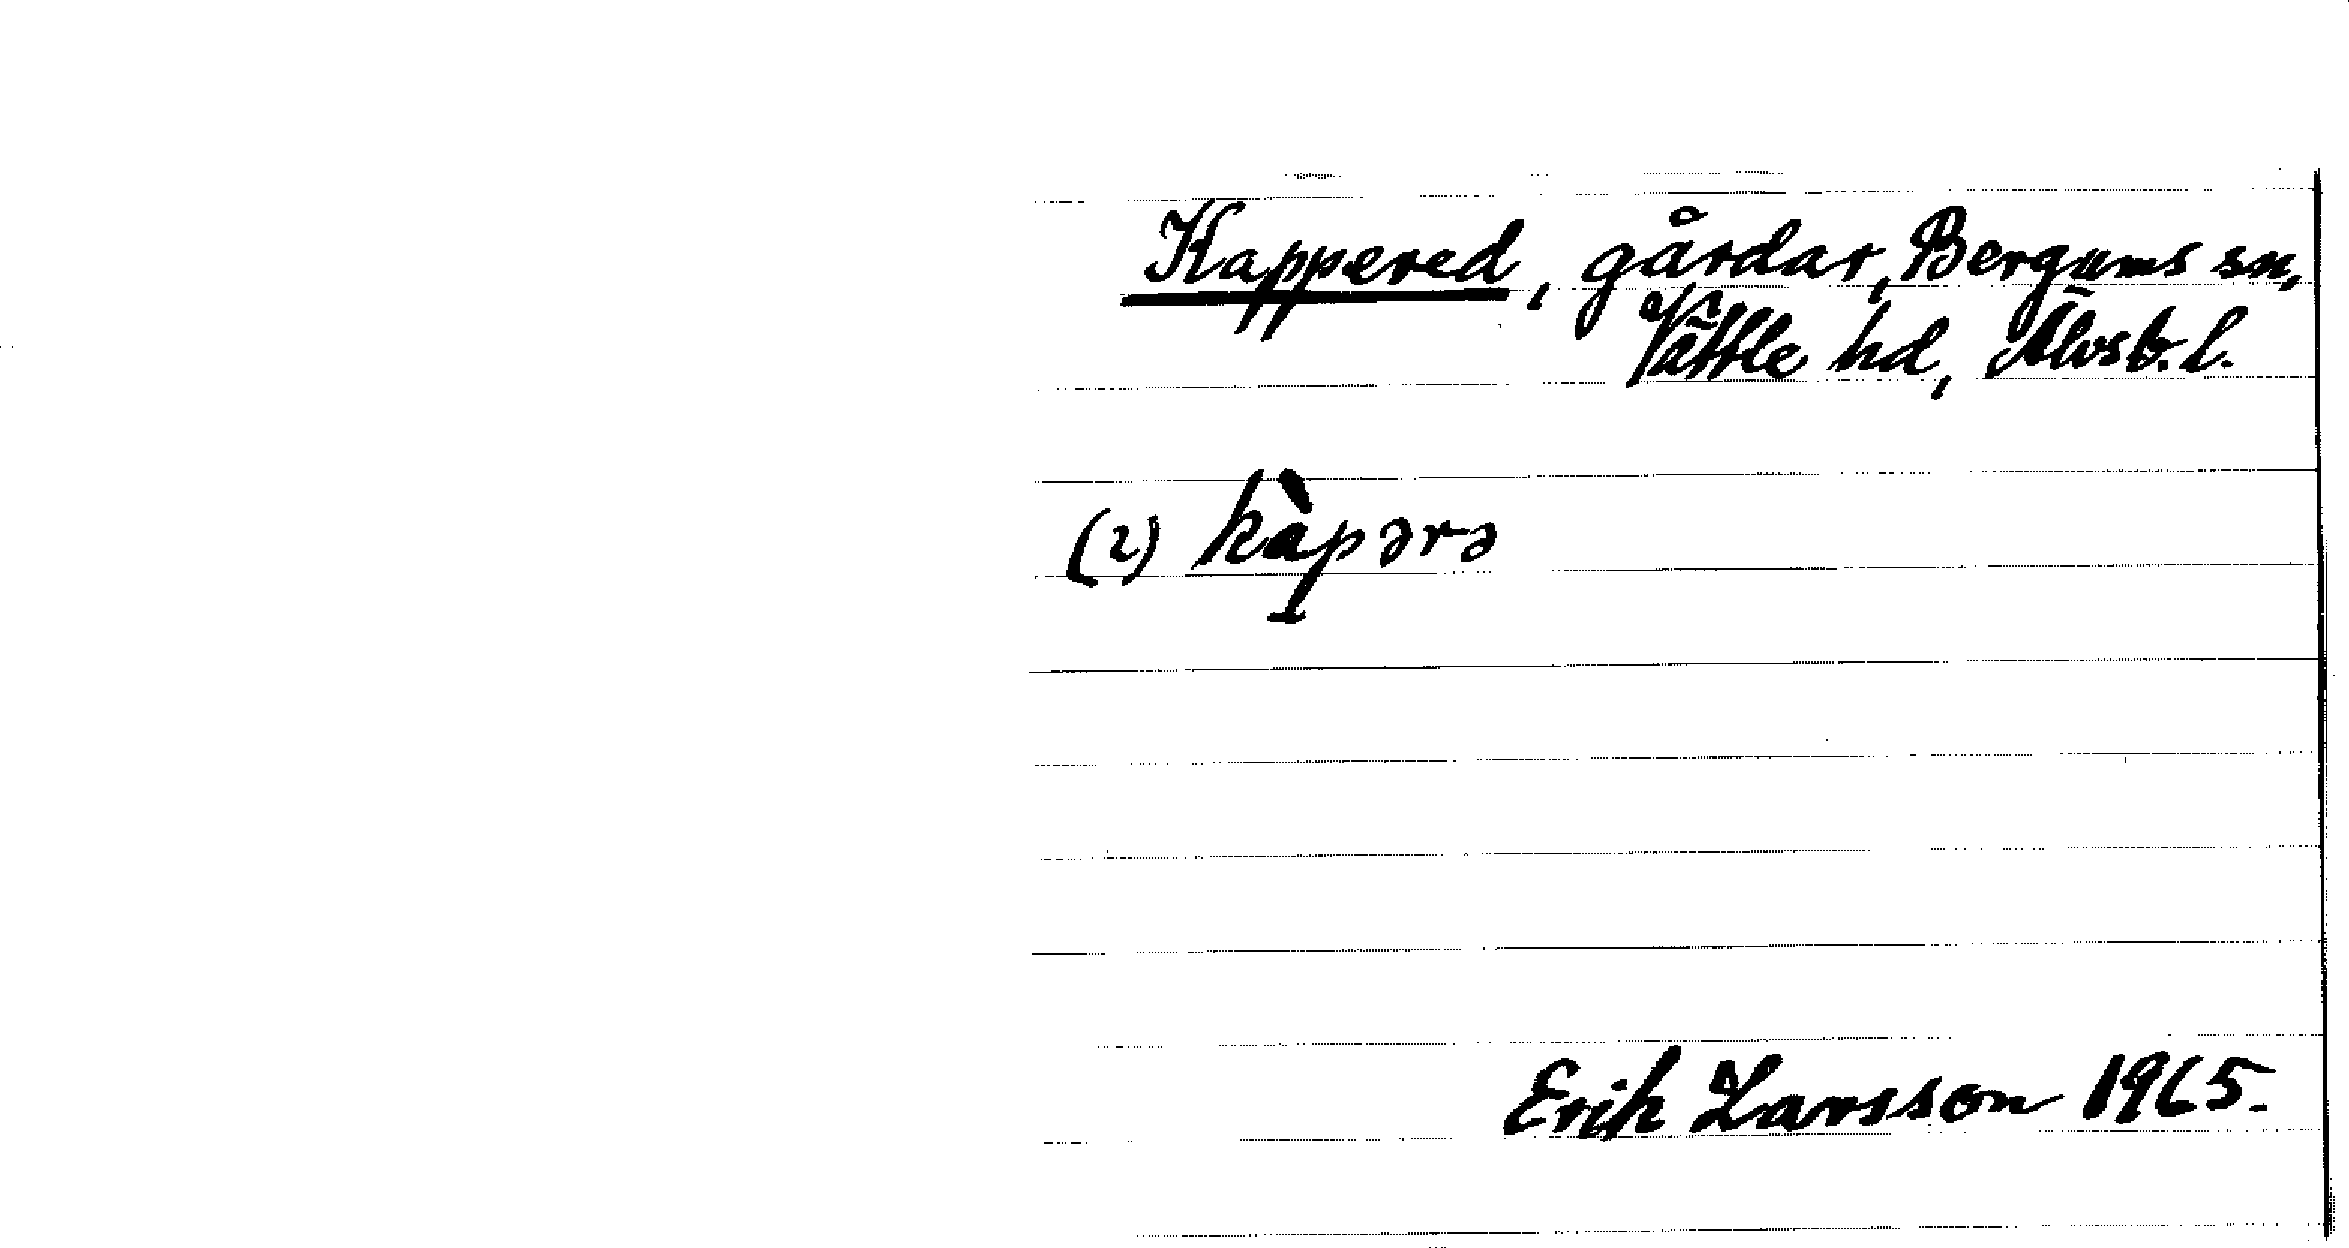 Kappered, gårdar, Bergums sn,
Vättle hd, Älvsb. l.
(2) kàpərə
Erik Larsson 1965.